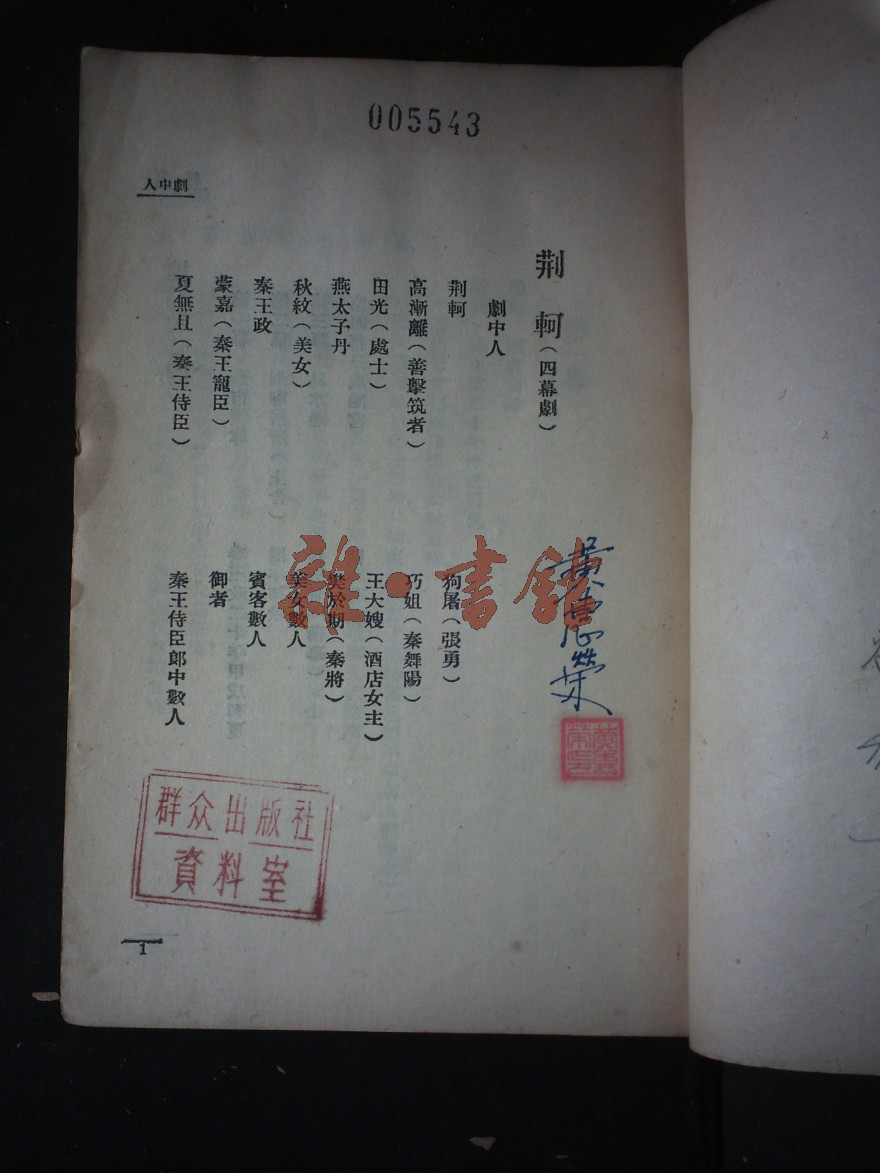 005543
劇中人
荆軻(四幕劇)
劇中人
荆軻
高漸離(善擊筑者)
田光(處士)
燕太子丹
秋紋(美女)
秦王政
蒙嘉(秦王寵臣)
夏無且(秦王侍臣)
狗屠(張勇)
巧姐(秦舞陽)
王大嫂(酒店女主)
樊於期(秦將)
美女數人
賓客數人
御者
秦王侍臣郎中數人
雜·書鋪
群众出版社
資料室
1